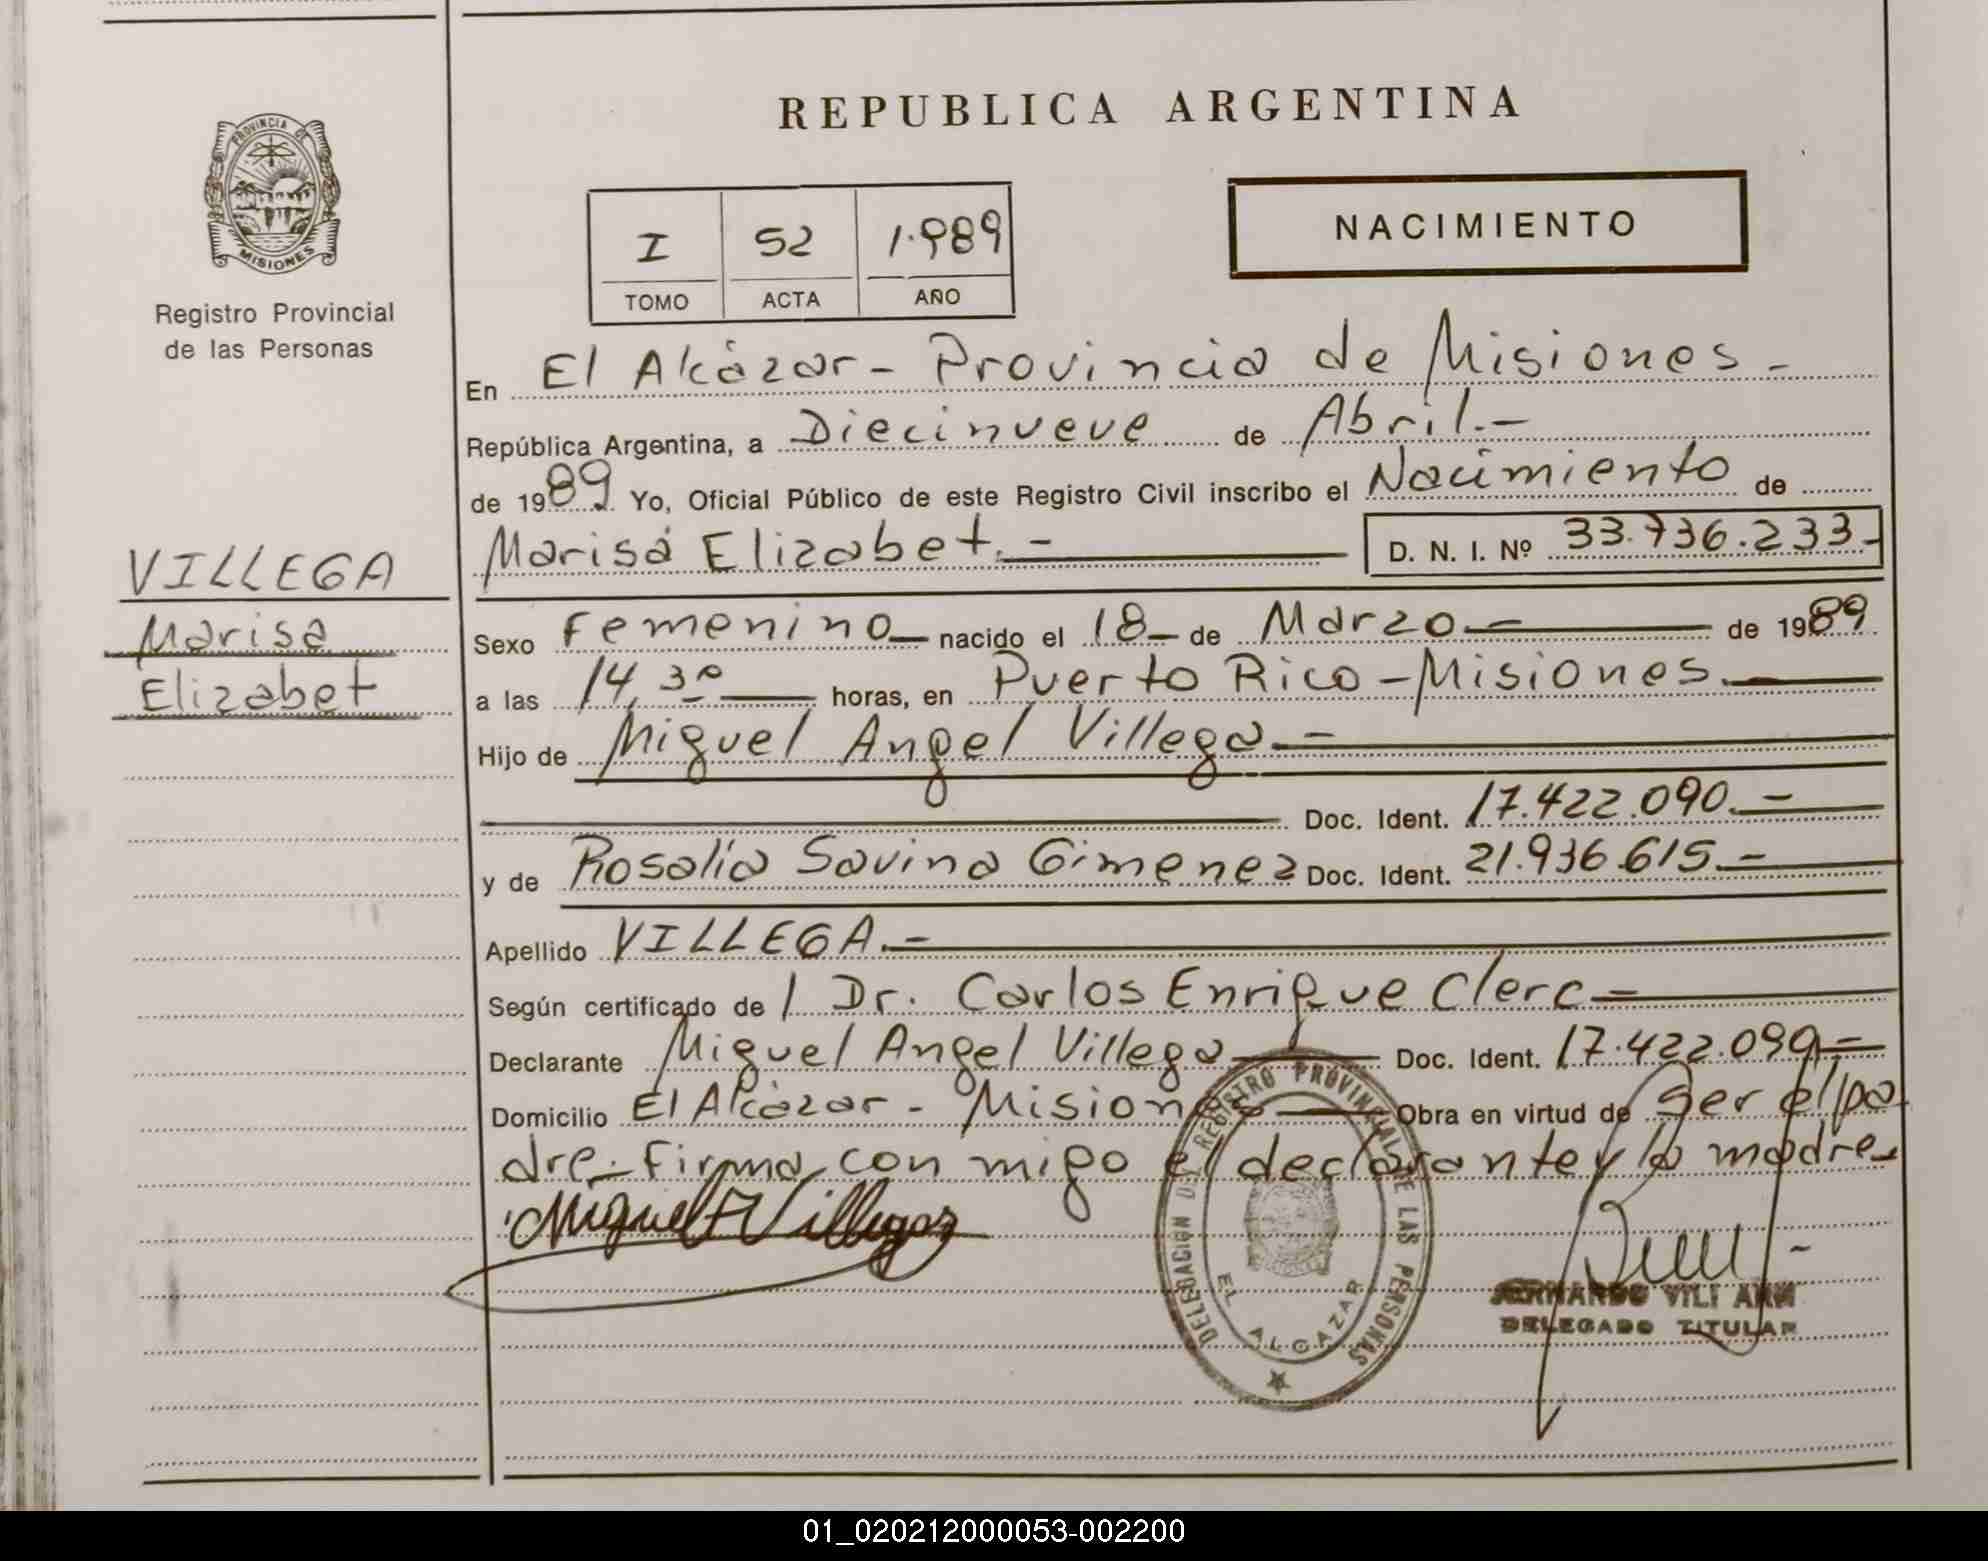 REPUBLICA ARGENTINA
PROVINCIA DE
MISIONES
Registro Provincial
de las Personas
I 52 1.989
TOMO ACTA AÑO
NACIMIENTO
En El Alcázar - Provincia de Misiones -
República Argentina, a Diecinueve de Abril.-
de 1989 Yo, Oficial Público de este Registro Civil inscribo el Nacimiento de
VILLEGA
Marisa
Elizabet
Marisa Elizabet.- D. N. I. Nº 33.736.233-
Sexo Femenino nacido el 18 de Marzo - de 1989
a las 14,30 horas, en Puerto Rico - Misiones.
Hijo de Miguel Angel Villega -
Doc. Ident. 17.422.090.-
y de Rosalía Savina Gimenez Doc. Ident. 21.936.615.-
Apellido VILLEGA.-
Según certificado de l Dr. Carlos Enrique Clerc -
Declarante Miguel Angel Villega Doc. Ident. 17.422.090 -
Domicilio El Alcázar - Misiones Obra en virtud de ser el pa
dre - Firma con migo el declarante y la madre
Miguel A Villegas
DELEGACION DEL REGISTRO PROVINCIAL DE LAS PERSONAS
EL ALCAZAR
DELEGADO TITULAR
01_020212000053-002200